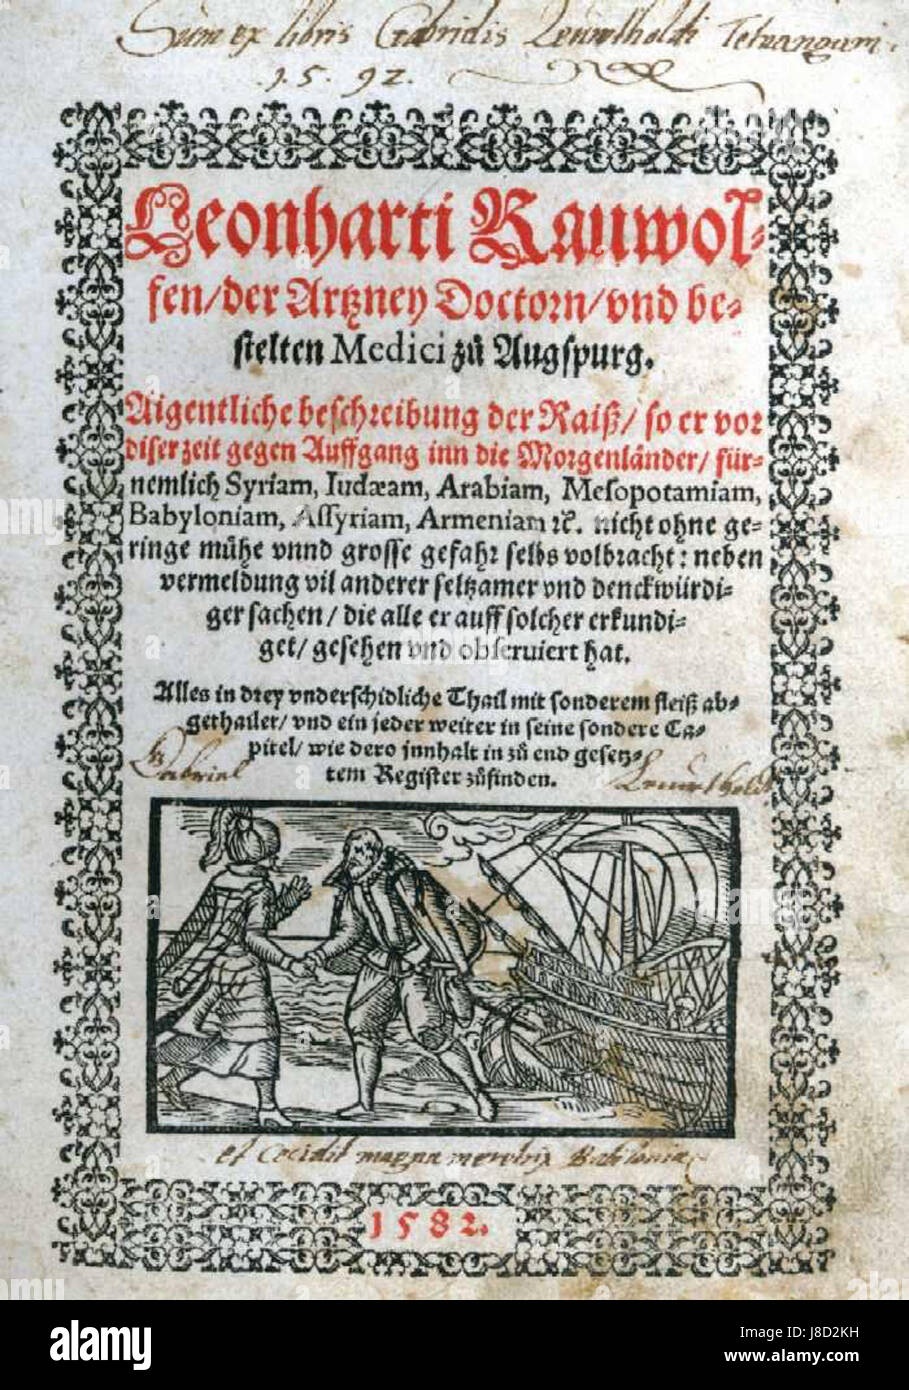 Sum ex libris Gabrielis Leuwtholdi Tetrangum.
1.5.92.
Leonharti Rauwol-
fen/der Artzney Doctorn/vnd be-
stelten Medici zů Augspurg.
Aigentliche beschreibung der Raiß/so er vor
diser zeit gegen Auffgang inn die Morgenländer/für-
nemlich Syriam, Iudæam, Arabiam, Mesopotamiam,
Babyloniam, Assyriam, Armeniam ꝛc. nicht ohne ge-
ringe mühe vnnd grosse gefahr selbs volbracht: neben
vermeldung vil anderer seltzamer vnd denckwürdi-
ger sachen/die alle er auff solcher erkundi-
get/gesehen vnd obseruiert hat.
Alles in drey vnderschidliche Thail mit sonderem fleiß ab-
gethailet/vnd ein jeder weiter in seine sondere Ca-
pitel/wie dero innhalt in zů end gesetz-
tem Register zůfinden.
Gabriel Leuwtholdt
et cecidit magna meretrix Babilonia
1582.
alamy
Image ID: J8D2KH
www.alamy.com